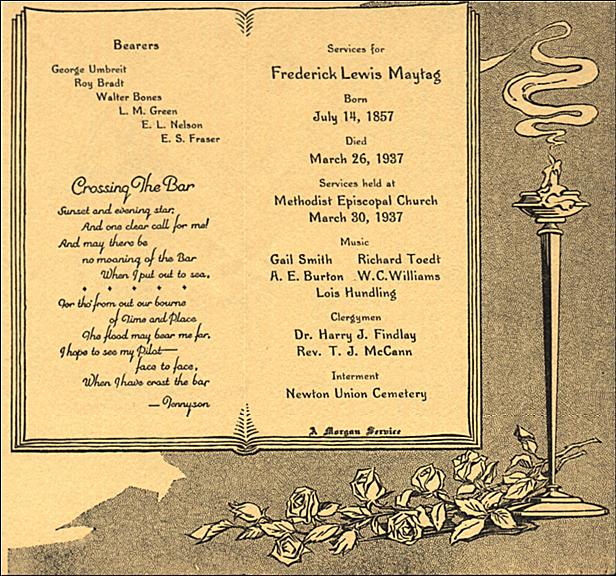 Bearers
George Umbreit
Roy Bradt
Walter Bones
L. M. Green
E. L. Nelson
E. S. Fraser
Crossing The Bar
Sunset and evening star,
And one clear call for me!
And may there be
no moaning of the Bar
When I put out to sea.
For tho' from out our bourne
of Time and Place
The flood may bear me far.
I hope to see my Pilot—
face to face,
When I have crost the bar
— Tennyson
Services for
Frederick Lewis Maytag
Born
July 14, 1857
Died
March 26, 1937
Services held at
Methodist Episcopal Church
March 30, 1937
Music
Gail Smith Richard Toedt
A. E. Burton W. C. Williams
Lois Hundling
Clergymen
Dr. Harry J. Findlay
Rev. T. J. McCann
Interment
Newton Union Cemetery
A Morgan Service